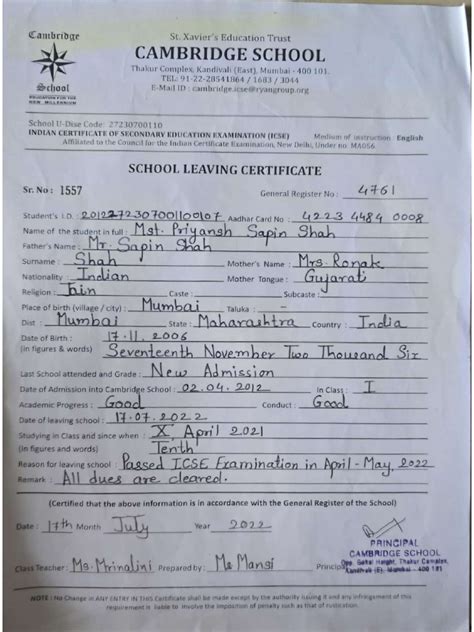 Cambridge
School
EDUCATION FOR THE
NEW MILLENNIUM
St. Xavier's Education Trust
CAMBRIDGE SCHOOL
Thakur Complex, Kandivali (East), Mumbai - 400 101.
TEL: 91-22-28541864 / 1683 / 3044
E-Mail ID : cambridge.icse@ryangroup.org
School U-Dise Code: 27230700110
INDIAN CERTIFICATE OF SECONDARY EDUCATION EXAMINATION (ICSE) Medium of instruction English
Affiliated to the Council for the Indian Certificate Examination, New Delhi, Under no MA056.
SCHOOL LEAVING CERTIFICATE
Sr. No : 1557 General Register No : 4761
Student's I.D : 2012272307001100107 Aadhar Card No : 4223 4484 0008
Name of the student in full : Mst. Priyansh Sapin Shah
Father's Name : Mr. Sapin Shah
Surname : Shah Mother's Name : Mrs. Ronak
Nationality : Indian Mother Tongue : Gujarati
Religion : Jain Caste : Subcaste :
Place of birth (village / city) : Mumbai Taluka : -
Dist : Mumbai State : Maharashtra Country : India
Date of Birth : 17.11.2006
(in figures & words) Seventeenth November Two Thousand Six
Last School attended and Grade : New Admission
Date of Admission into Cambridge School : 02.04.2012 In Class : I
Academic Progress : Good Conduct : Good
Date of leaving school : 17.07.2022
Studying in Class and since when : X, April 2021
(In figures and words) Tenth
Reason for leaving school : Passed ICSE Examination in April-May, 2022
Remark : All dues are cleared.
(Certified that the above information is in accordance with the General Register of the School)
Date : 17th Month July Year 2022
PRINCIPAL
CAMBRIDGE SCHOOL
Opp. Height, Thakur Complex,
Kandivali (E), Mumbai - 400 101
Class Teacher : Ms. Mrinalini Prepared by : Ms Mansi Principal
NOTE : No Change in ANY ENTRY IN THIS Certificate shall be made except by the authority issuing it and any infringement of this
requirement is liable to involve the imposition of penalty such as that of rustication.